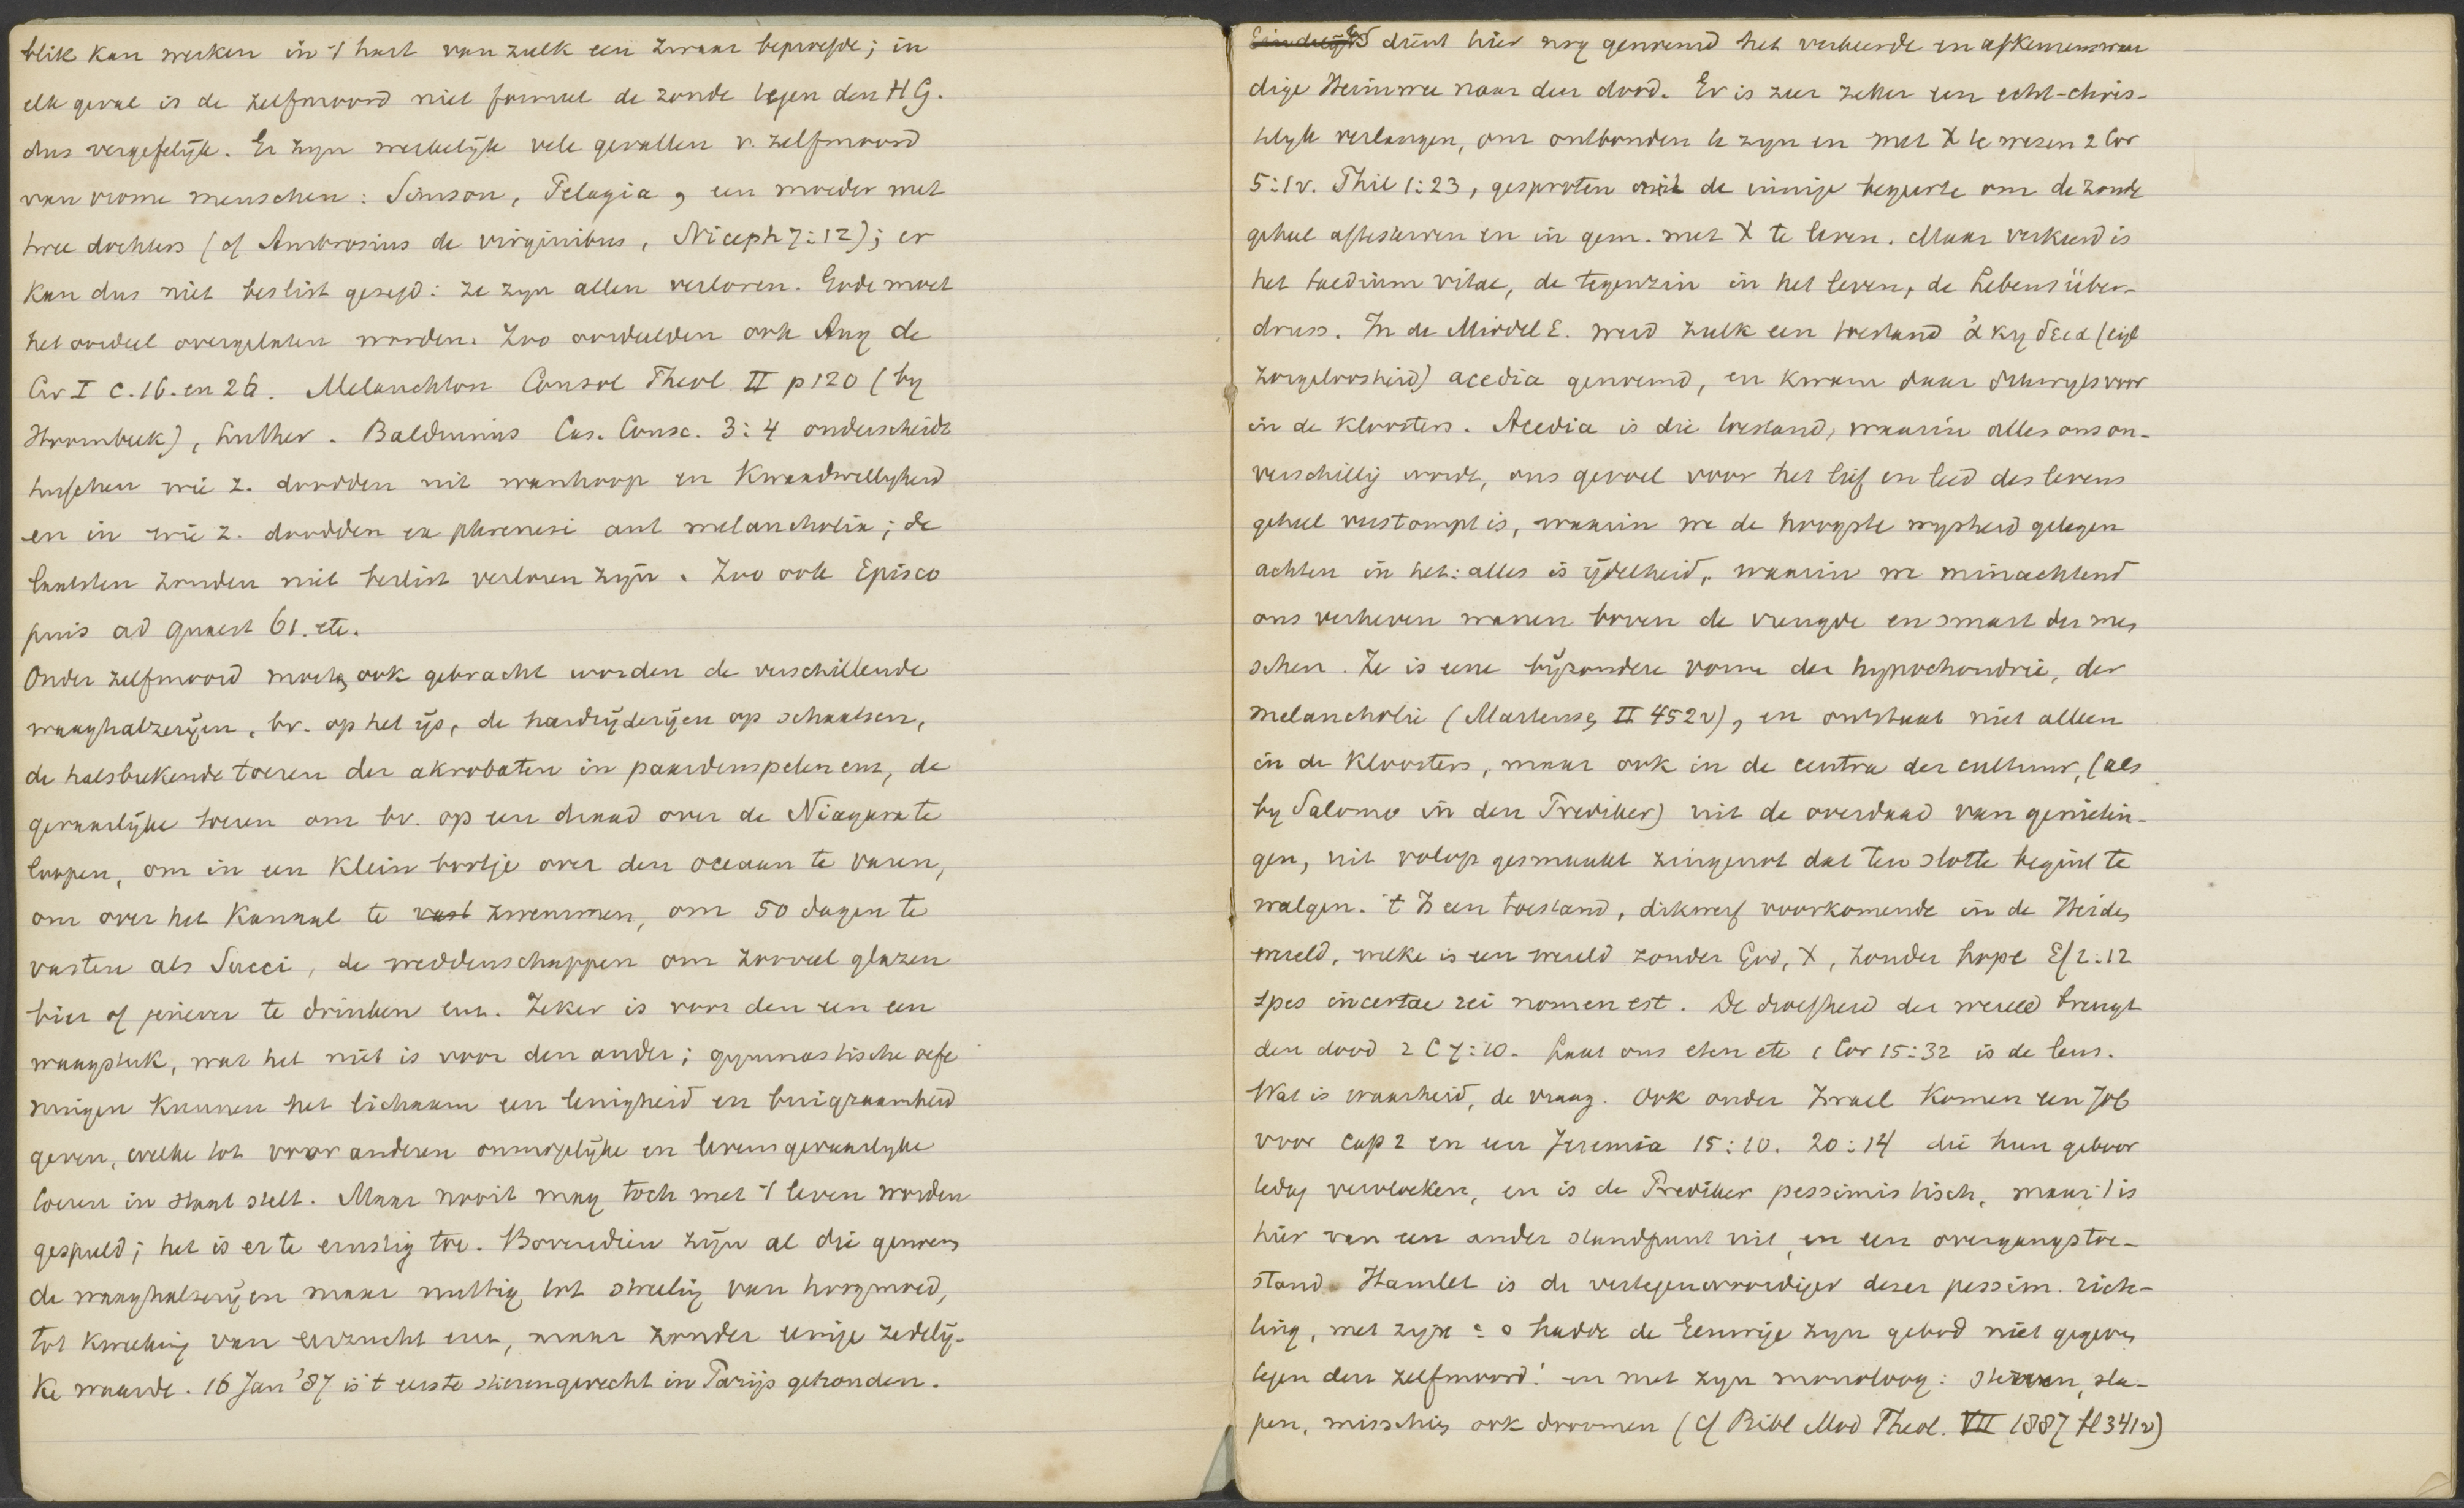 blik kan werken in 't hart van zulk een zwaar beproefde; in
elk geval is de zelfmoord niet formeel de zonde tegen den H G.
dus vergefelijk. Er zyn werkelijk vele gevallen v. zelfmoord
van vrome menschen: Simson, Pelagia, een moeder met
twee dochters (cf Ambrosius de virginibus, Niceph 7:12); er
kan dus niet beslist gezegd: ze zyn allen verloren. Gode moet
het oordeel overgelaten worden. Zoo oordeelden ook Aug de
Civ I c.16. en 26. Melanchton Consol Theol II p 120 (by
Hoornbeek), Luther. Balduinus Cas. Consc. 3:4 onderscheidt
tusschen wie z. doodden uit wanhoop en kwaadwilligheid
en in wie z. doodden ex phrenesi aut melancholia; de
laatsten zouden niet beslist verloren zyn. Zoo ook Episco
pius ad Quaest 61. etc.
Onder zelfmoord moeten ook gebracht worden de verschillende
waaghalzerijen, bv. op het ijs, de hardrijderijen op schaatsen,
de halsbrekende toeren der akrobaten in paardenspelen enz, de
gevaarlijke toeren om bv. op een draad over de Niagara te
loopen, om in een klein bootje over den oceaan te varen,
om over het Kanaal te vast zwemmen, om 50 dagen te
vasten als Succi, de weddenschappen om zooveel glazen
bier of jenever te drinken enz. Zeker is voor den een een
waagstuk, wat het niet is voor den ander; gymnastische oefe
ningen kunnen het lichaam een lenigheid en buigzaamheid
geven, welke tot voor anderen onmogelijke en levensgevaarlyke
toeren in staat stelt. Maar nooit mag toch met 't leven worden
gespeeld; het is er te ernstig toe. Bovendien zijn al die genoem
de waaghalserijen maar nuttig tot streeling van hoogmoed,
tot kweeking van eerzucht enz, maar zonder eenige zedelij-
ke waarde. 16 Jan '87 is 't eerste stierengevecht in Parijs gehouden.
Eindelijk dient hier nog genoemd het verkeerde en afkeurenswaar
dige Heimwee naar den dood. Er is zeer zeker een echt-chris-
telyk verlangen, om ontbonden te zyn en met X te wezen 2 Cor
5:1v. Phil 1:23, gesproten uit de innige begeerte om de zonde
geheel aftesterven en in gem. met X te leven. Maar verkeerd is
het taedium vitae, de tegenzin in het leven, de Lebensüber-
druss. In de Middel E. werd zulk een toestand ἀκηδεια (eigl
zorgeloosheid) acedia genoemd, en kwam daar dikwyls voor
in de kloosters. Acedia is die toestand, waarin alles ons on-
verschillig wordt, ons gevoel voor het lief en leed des levens
geheel verstompt is, waarin we de hoogste wysheid gelegen
achten in het: alles is ijdelheid, waarin we minachtend
ons verheven wanen boven de vreugde en smart der men
schen. Ze is eene bijzondere vorm der hypochondrie, der
melancholie (Martensen II 452v), en ontstaat niet alleen
in de kloosters, maar ook in de centra der cultuur, (als
by Salomo in den Prediker) uit de overdaad van genietin-
gen, uit volop gesmaakt zingenot dat ten slotte begint te
walgen. 't Is een toestand, dikwerf voorkomende in de Heiden
wereld, welke is een wereld zonder God, X, zonder hope Ef 2:12
spes incertae rei nomen est. De droefheid der wereld brengt
den dood 2 C 7:10. Laat ons eten etc 1 Cor 15:32 is de leus.
Wat is waarheid, de vraag. Ook onder Israel komen een Job
voor cap 2 en een Jeremia 15:10. 20:14 die hun geboor
tedag vervloeken, en is de Prediker pessimistisch, maar 't is
hier van een ander standpunt uit, en een overgangstoe-
stand. Hamlet is de vertegenwoordiger dezer pessim. rich-
ting, met zijn: o hadde de Eeuwige zyn gebod niet gegeven
tegen den zelfmoord! en met zyn monoloog: sterven, sla-
pen, misschien ook droomen (cf Bibl Mod Theol. VII 1887 bl 341v)